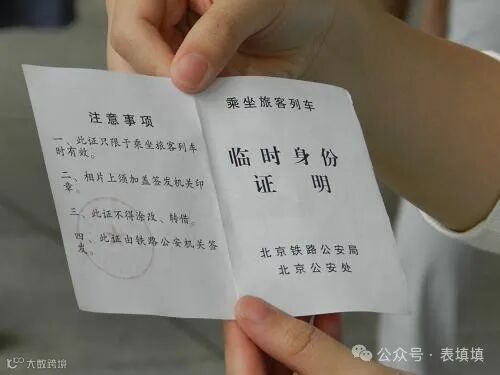 注意事项
一、此证只限于乘坐旅客列车
时有效。
二、相片上须加盖签发机关印
章。
三、此证不得涂改、转借。
四、此证由铁路公安机关签
发。
乘坐旅客列车
临时身份
证明
北京铁路公安局
北京公安处
大数跨境
公众号·表填填